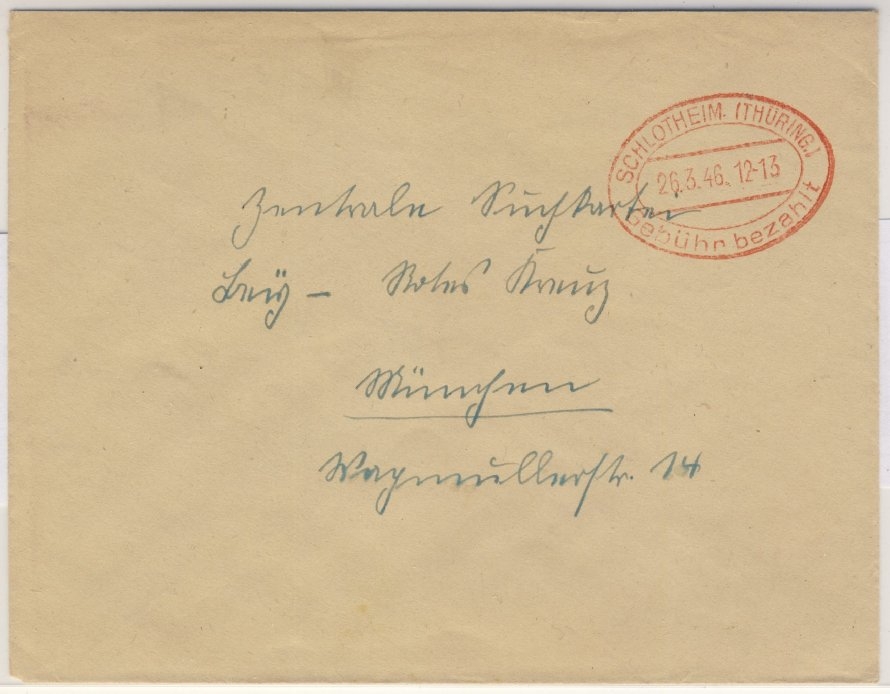 SCHLOTHEIM. (THÜRING.)
26.3.46. 12-13
Gebühr bezahlt
Zentrale Suchkartei
Bay – Rotes Kreuz
München
Wagmüllerstr. 14